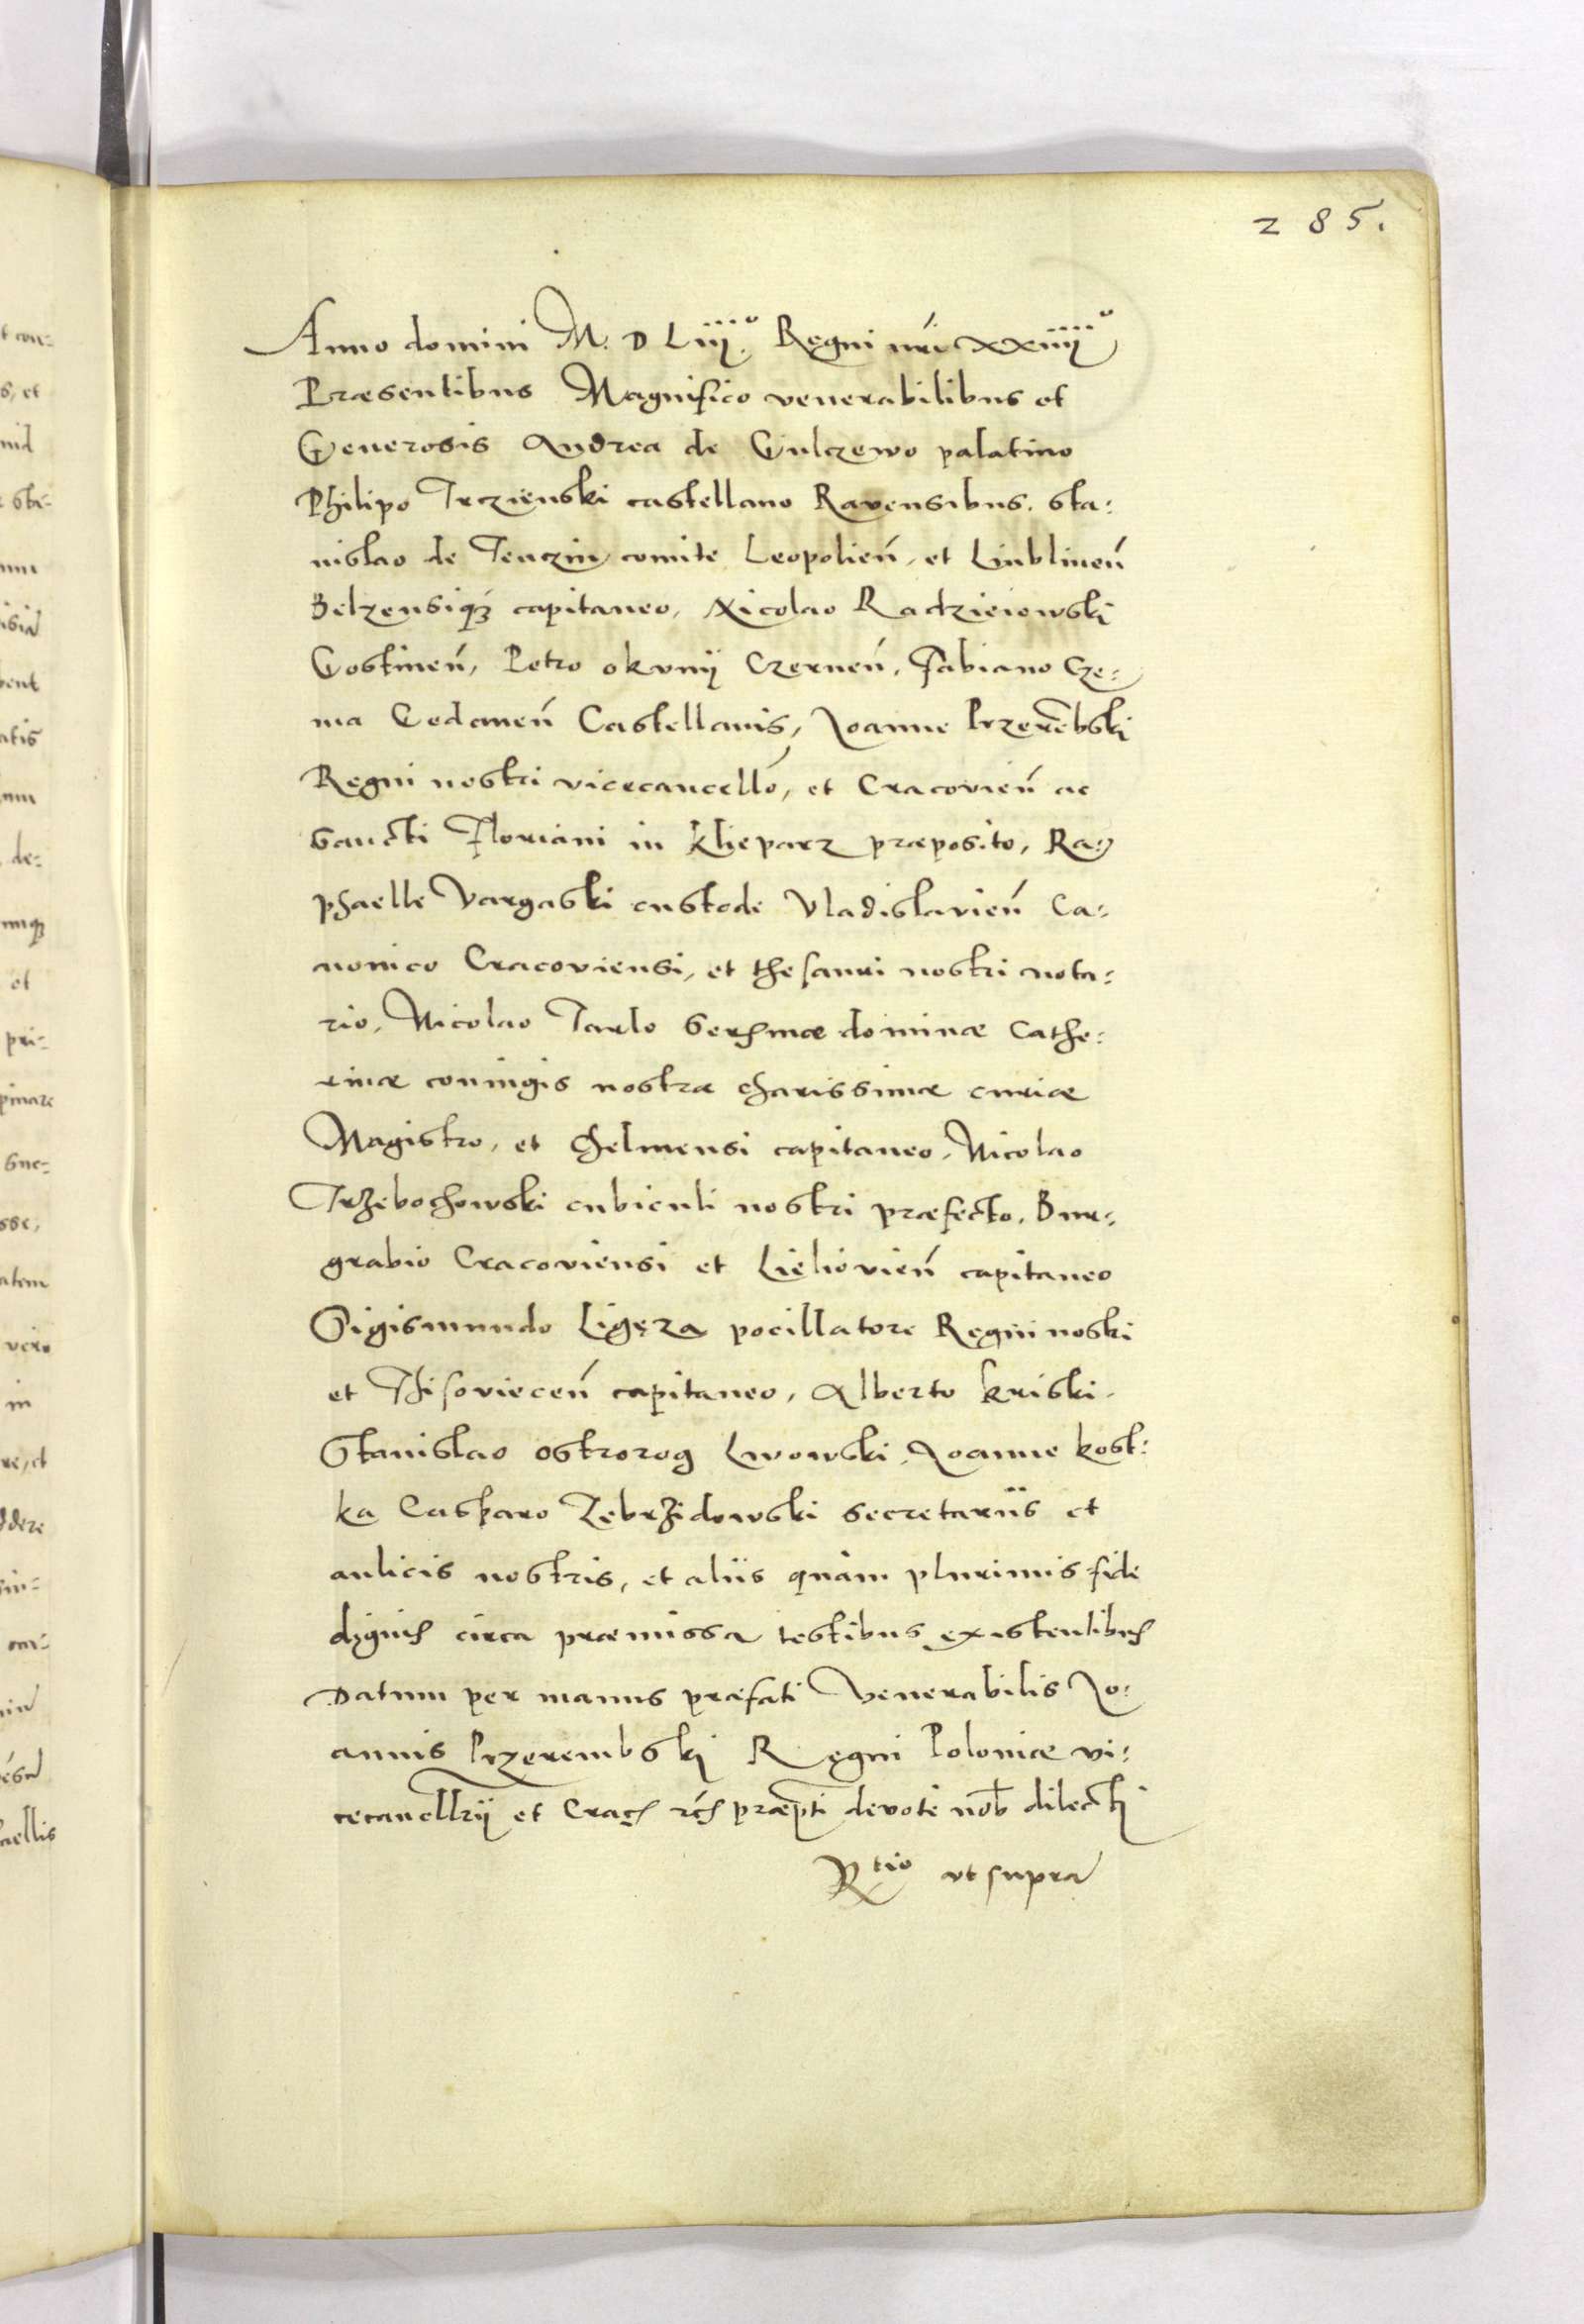 285.
Anno domini M. D Liij.º Regni nri xxiiijº
Præsentibus Magnifico venerabilibus et
Generosis Andrea de Gulczewo palatino
Philipo Trczienski castellano Ravensibus. Sta:
nislao de Tenczin comite Leopolien̄, et Lublinen̄
Belzensiq₃ capitaneo, Nicolao Radzieiowski
Gostinen̄, Petro okunij Czernen̄, Fabiano Cze:
ma Gedanen̄ Castellanis, Joanne Przerẽbski
Regni nostri vicecancellō, et Cracovien̄ ac
Sancti Floriani in Klieparz præposito, Ra:
phaelle Vargaski custode Vladislavien̄ Ca:
nonico Cracoviensi, et thesauri nostri nota:
rio, Nicolao Tarlo Serenis̃mæ dominæ Cathe:
rinæ coniugis nostræ charissimæ curiæ
Magistro, et Chelmensi capitaneo, Nicolao
Trzebochowski cubiculi nostri præfecto, Bur:
grabio Cracoviensi et Lielioviẽn capitaneo
Sigismundo Ligęza pocillatore Regni nostri
et capitaneo, Alberto Kriski.
Stanislao Ostrorog Lwowski, Joanne Kost:
ka Casparo Zebrzidowski secretariis et
aulicis nostris, et aliis quàm plurimis fide
dignis circa præmissa testibus existentibus
Datum per manus præfati Venerabilis Jo:
annis Przerembskj Regni Poloniæ vi:
cecancellrij et Cracs præpti devote nob̄ dilectj
Rtio ut supra